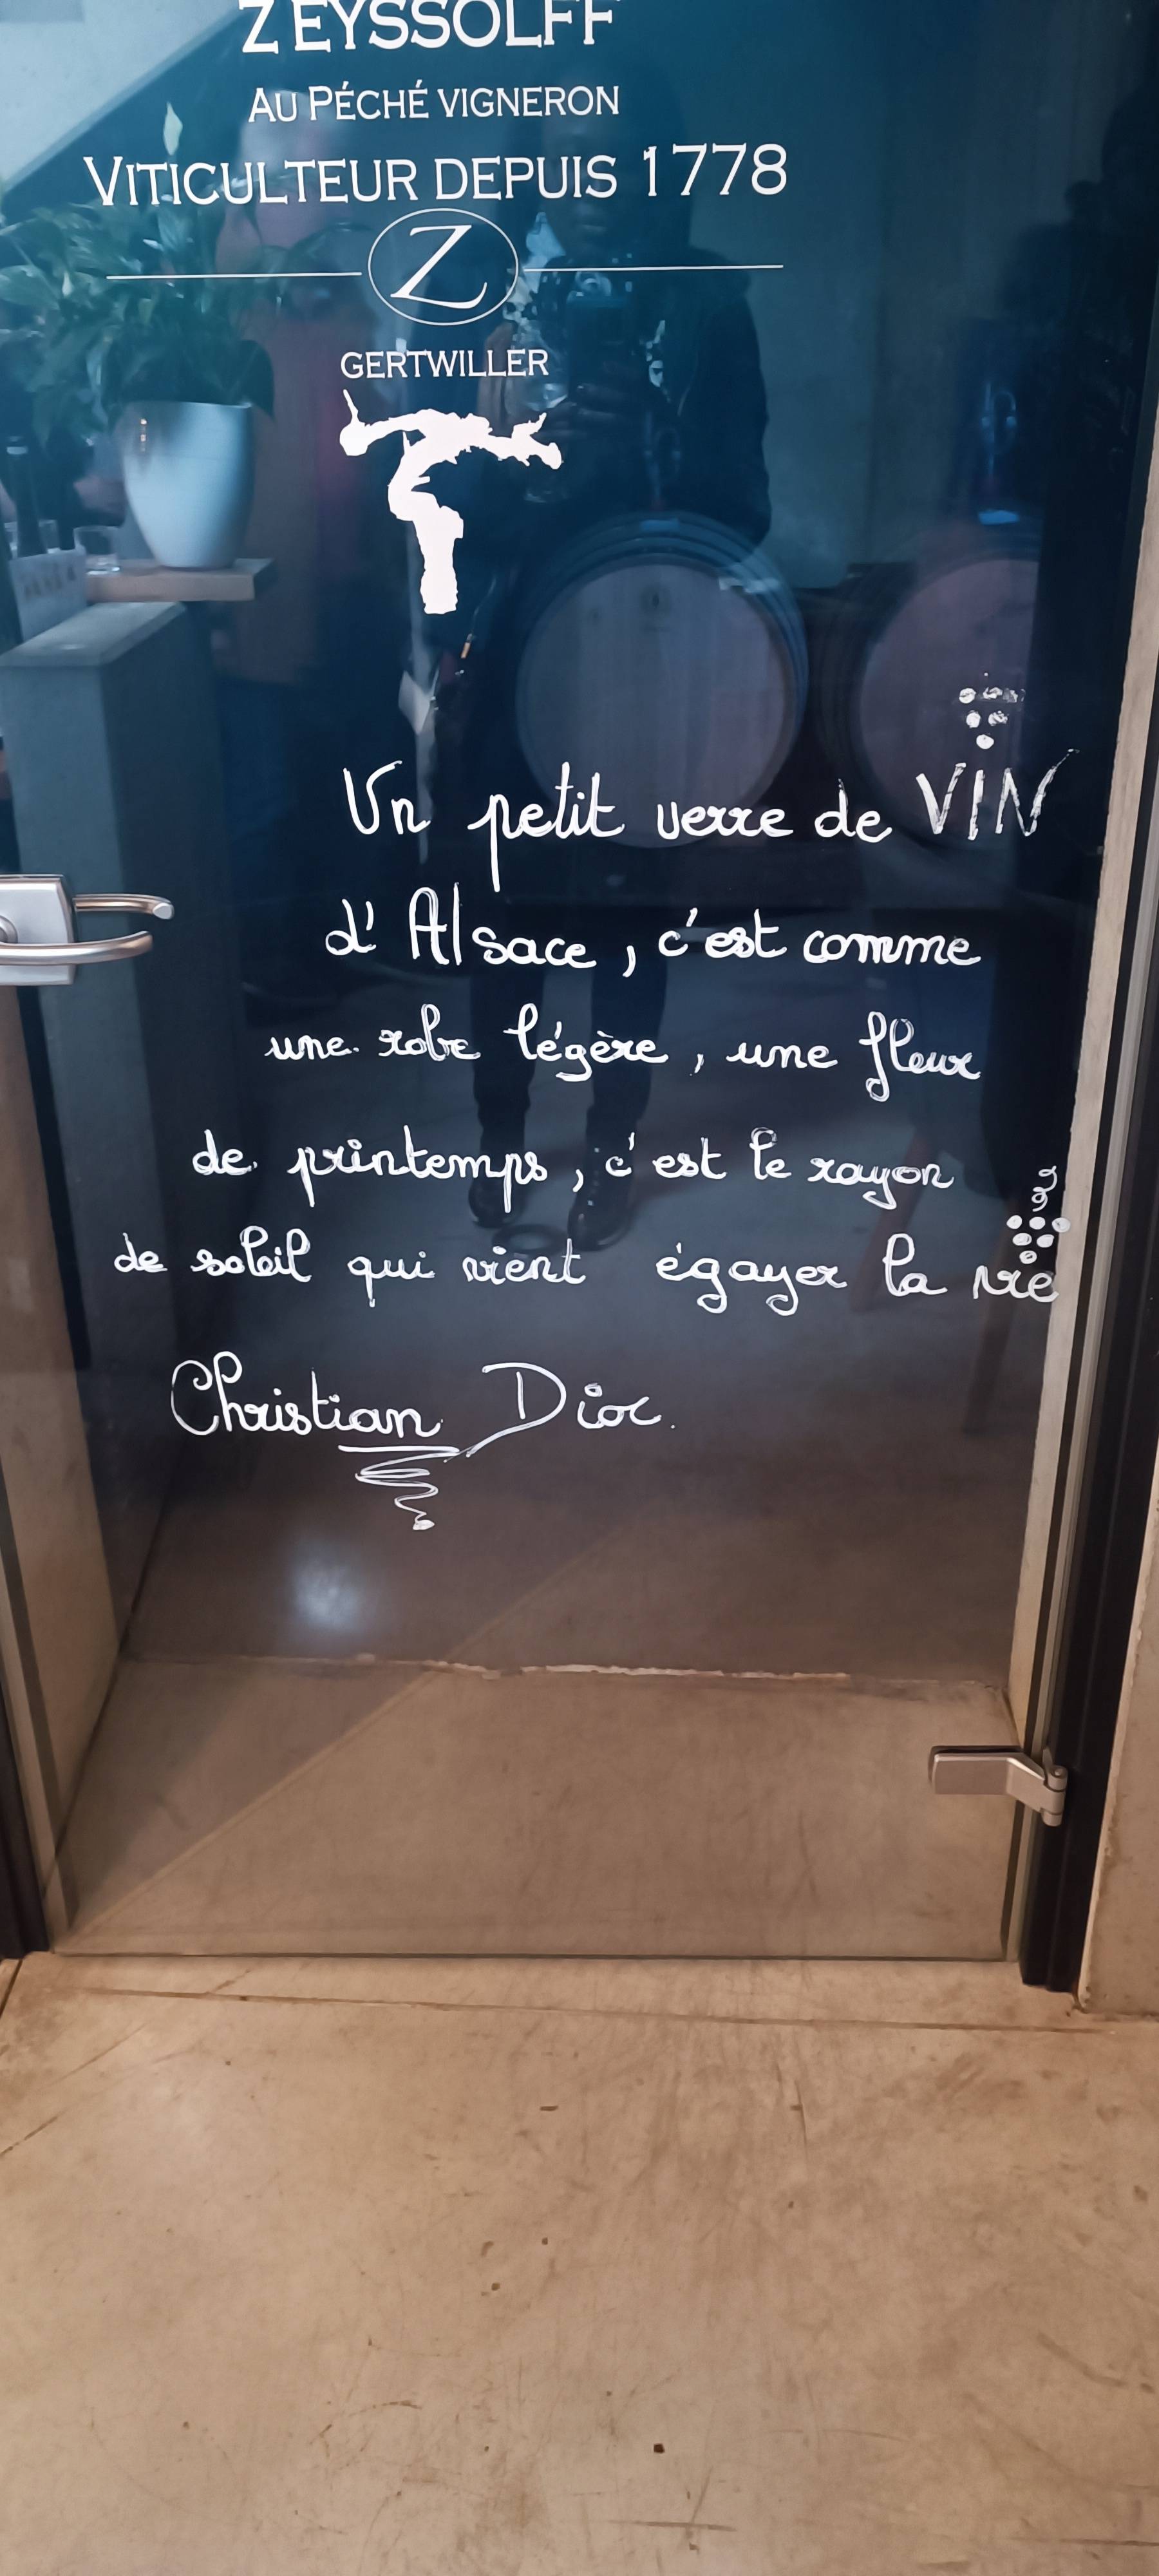 ZEYSSOLFF
AU PÉCHÉ VIGNERON
VITICULTEUR DEPUIS 1778
Z
GERTWILLER
Un petit verre de VIN
d'Alsace, c'est comme
une robe légère, une fleur
de printemps, c'est le rayon
de soleil qui vient égayer la vie
Christian Dior.